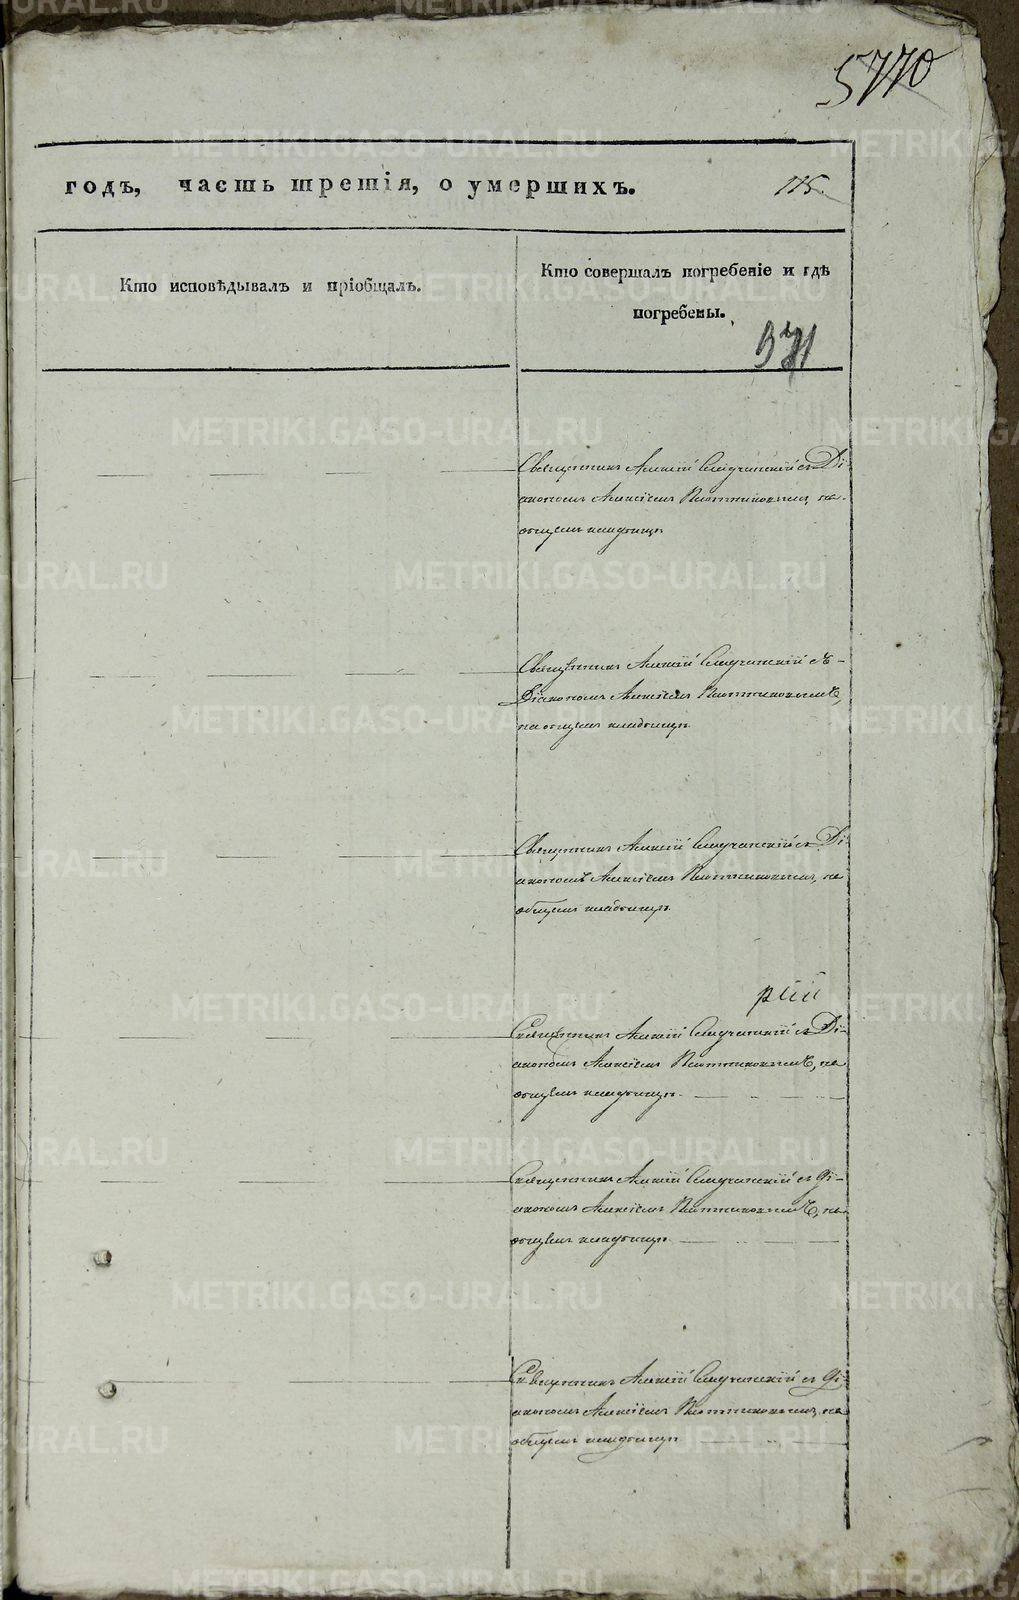 5770
годъ, часть третія, о умершихъ.
115.
Кто исповѣдывалъ и пріобщалъ.
Кто совершалъ погребеніе и гдѣ
погребены.
371
Священникъ Алексій съ Ді-
акономъ Алексіемъ Плотниковымъ, на
общемъ кладбищѣ
Священникъ Алексій съ
Діакономъ Алексіемъ Плотниковымъ,
на общемъ кладбищѣ
Священникъ Алексій съ Ді-
акономъ Алексіемъ Плотниковымъ, на
общемъ кладбищѣ.
Священникъ Алексій съ Ді-
акономъ Алексіемъ Плотниковымъ, на
общемъ кладбищѣ.
Священникъ Алексій съ Ді-
акономъ Алексіемъ Плотниковымъ, на
общемъ кладбищѣ.
Священникъ Алексій съ Ді-
акономъ Алексіемъ Плотниковымъ, на
общемъ кладбищѣ
METRIKI.GASO-URAL.RU